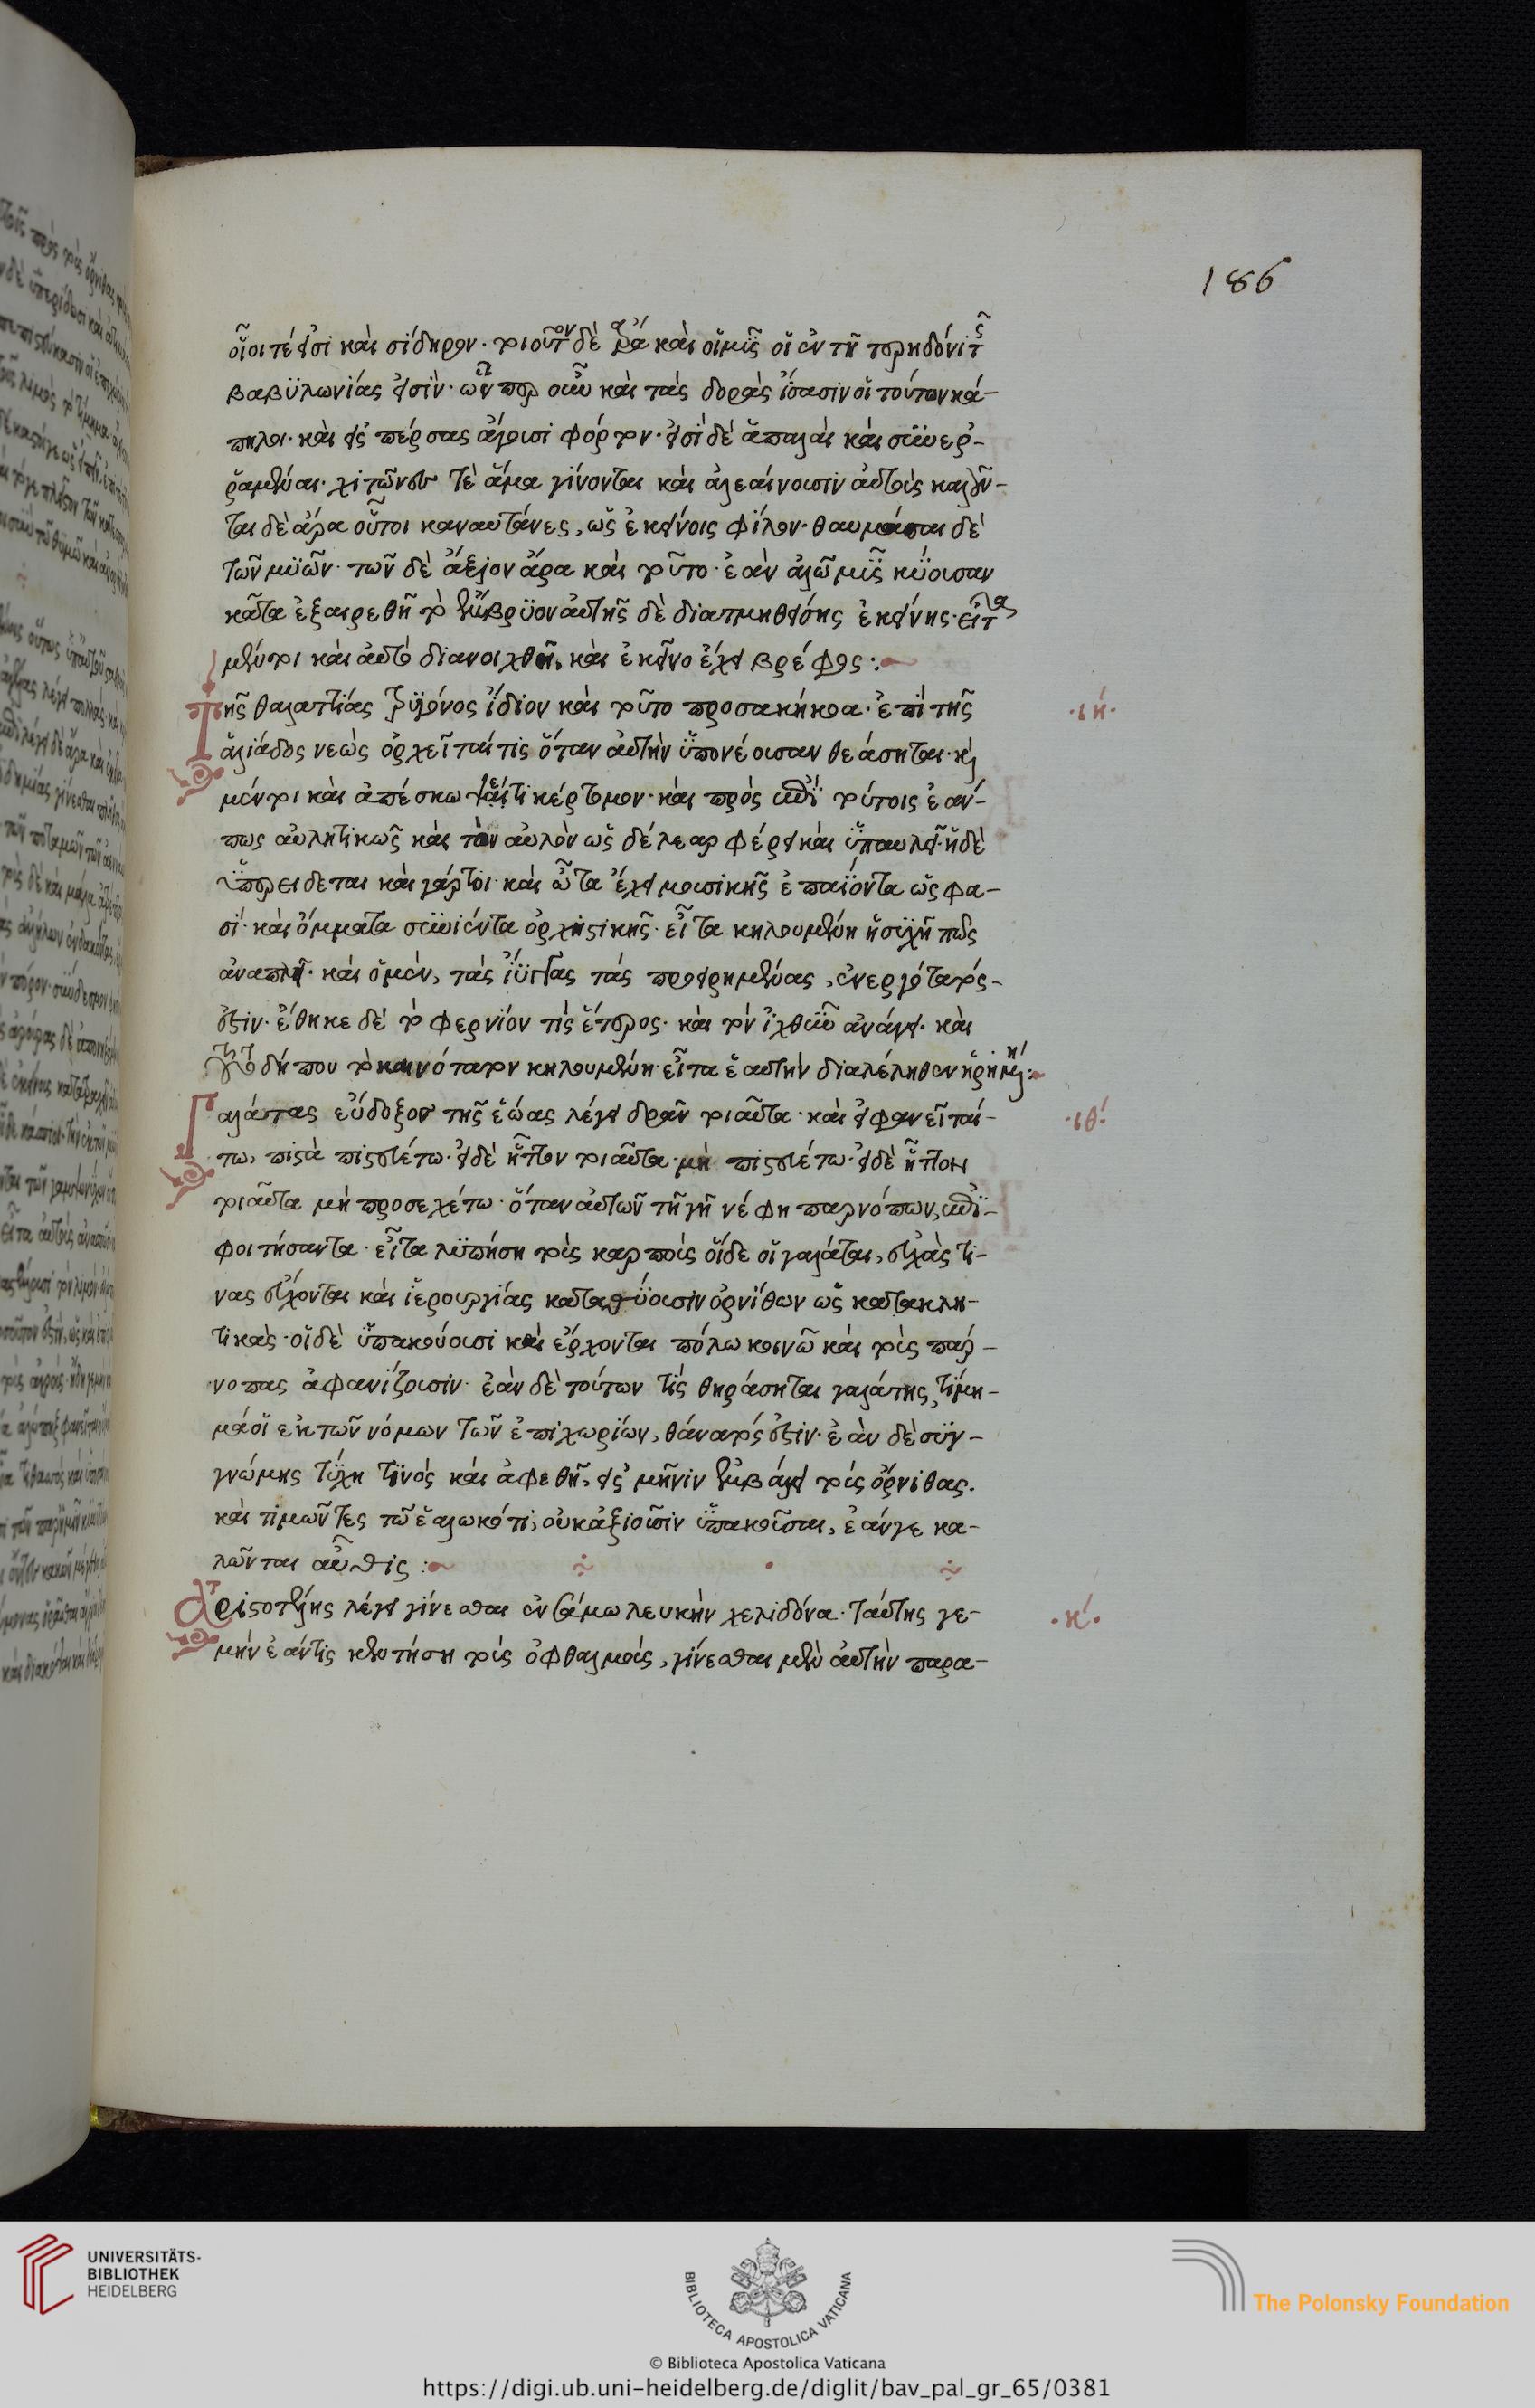 186
οἷοι τέ εἰσι καὶ σίδηρον· τοιοῦτον δὲ ἄρα καὶ οἱ μῦς οἱ ἐν τῇ τερηδόνι τῆς
βαβϋλωνίας εἰσὶν· ὧνπερ οὖν καὶ τὰς δορὰς ἄγουσιν οἱ τούτων κά-
πηλοι· καὶ εἰς πέρσας ἄγουσι φόρτον· εἰσὶ δὲ ἁπαλαὶ καὶ συνερ-
ραμμέναι· χιτῶνές τε ἅμα γίνονται καὶ ἀλεαίνουσιν αὐτοὺς καλοῦν-
ται δὲ ἄρα οὗτοι καναυτάνες, ὡς ἐκείνοις φίλον· θαυμάσαι δὲ
τῶν μϋῶν· τῶν δὲ ἄξιον ἄρα καὶ τοῦτο· ἐὰν ἁλῷ μῦς κϋουσαν
κᾆτα ἐξαιρεθῇ τὸ ἔμβρϋον αὐτῆς δὲ διατμηθείσης ἐκείνης· εἶτα
μέντοι καὶ αὐτὸ διανοιχθῇ, καὶ ἐκεῖνο ἔχει βρέφος:
Τῆς θαλαττίας τρϋγόνος ἴδιον καὶ τοῦτο προσακήκοα· ἐπὶ τῆς ·ιή·
ἁλιάδος νεὼς ὀρχεῖταί τις ὅταν αὐτὴν ὑπονέουσαν θεάσηται· καὶ
μέντοι καὶ ἀπέσκωψέ τι κέρτομον· καὶ πρὸς ἐπὶ τούτοις ἐάν-
πως αὐλητικῶς καὶ τὸν αὐλὸν ὡς δέλεαρ φέρει καὶ ὑπαυλεῖ· ἡ δὲ
ὑπερείδεται καὶ γάρτοι καὶ ὦτα ἔχει μουσικῆς ἐπαΐοντα ὥς φα-
σί· καὶ ὄμματα συνιέντα ὀρχηστικῆς· εἶτα κηλουμένη ἡσϋχῆ πως
ἀναπλεῖ· καὶ ὁ μέν, τὰς ἴϋγγας τὰς προειρημένας, ἐνεργότατός-
ἐστιν· ἔθηκε δὲ τὸ φερνίον τὶς ἕτερος· καὶ τὸν ἰχθῦν ἀνάγει· καὶ
τοῦτο δήπου τὸ καινότατον κηλουμένη εἶτα ἑαυτὴν διαλέληθεν ᾑρημένη:
Γαλάτας εὔδοξος τῆς ἑῴας λέγει δρᾶν τοιαῦτα· καὶ εἰ φανεῖταί- ·ιθ·
τω, πιστὰ πιστευέτω· εἰ δὲ ἧττον τοιαῦτα· μὴ πιστευέτω· εἰ δὲ ἧττον
τοιαῦτα μὴ προσεχέτω· ὅταν αὐτῶν τῇ γῇ νέφη παρνόπων, ἐπι-
φοιτήσαντα· εἶτα λϋπήση τοὺς καρποὺς οἵδε οἱ γαλάται, εὐχὰς τι-
νας εὔχονται καὶ ἱερουργίας καταθϋουσιν ὀρνίθων ὡς κατακλη-
τικάς· οἱ δὲ ὑπακούουσι καὶ ἔρχονται πόλω κοινῶ καὶ τοὺς παρ-
νοπας ἀφανίζουσιν· ἐὰν δὲ τούτων τὶς θηράσηται γαλάτης, τίμη-
μά οἱ ἐκ τῶν νόμων τῶν ἐπιχωρίων, θάνατός ἐστιν· ἐὰν δὲ σϋγ-
γνώμης τϋχη τινὸς καὶ ἀφεθῇ, εἰς μῆνιν ἐμβάλει τοὺς ὄρνιθας.
καὶ τιμῶντες τῶ ἑαλωκότι, οὐκ ἀξιοῦσιν ὑπακοῦσαι, ἐάνγε κα-
λῶνται αὖθις :
Ἀριστοτέλης λέγει γίνεσθαι ἐν σάμω λευκὴν χελιδόνα· ταύτης γε- ·κ·
μὴν ἐάντις κεντήση τοὺς ὀφθαλμούς, γίνεσθαι μὲν αὐτὴν παρα-
UNIVERSITÄTS-
BIBLIOTHEK
HEIDELBERG
BIBLIOTECA APOSTOLICA VATICANA
© Biblioteca Apostolica Vaticana
The Polonsky Foundation
https://digi.ub.uni-heidelberg.de/diglit/bav_pal_gr_65/0381